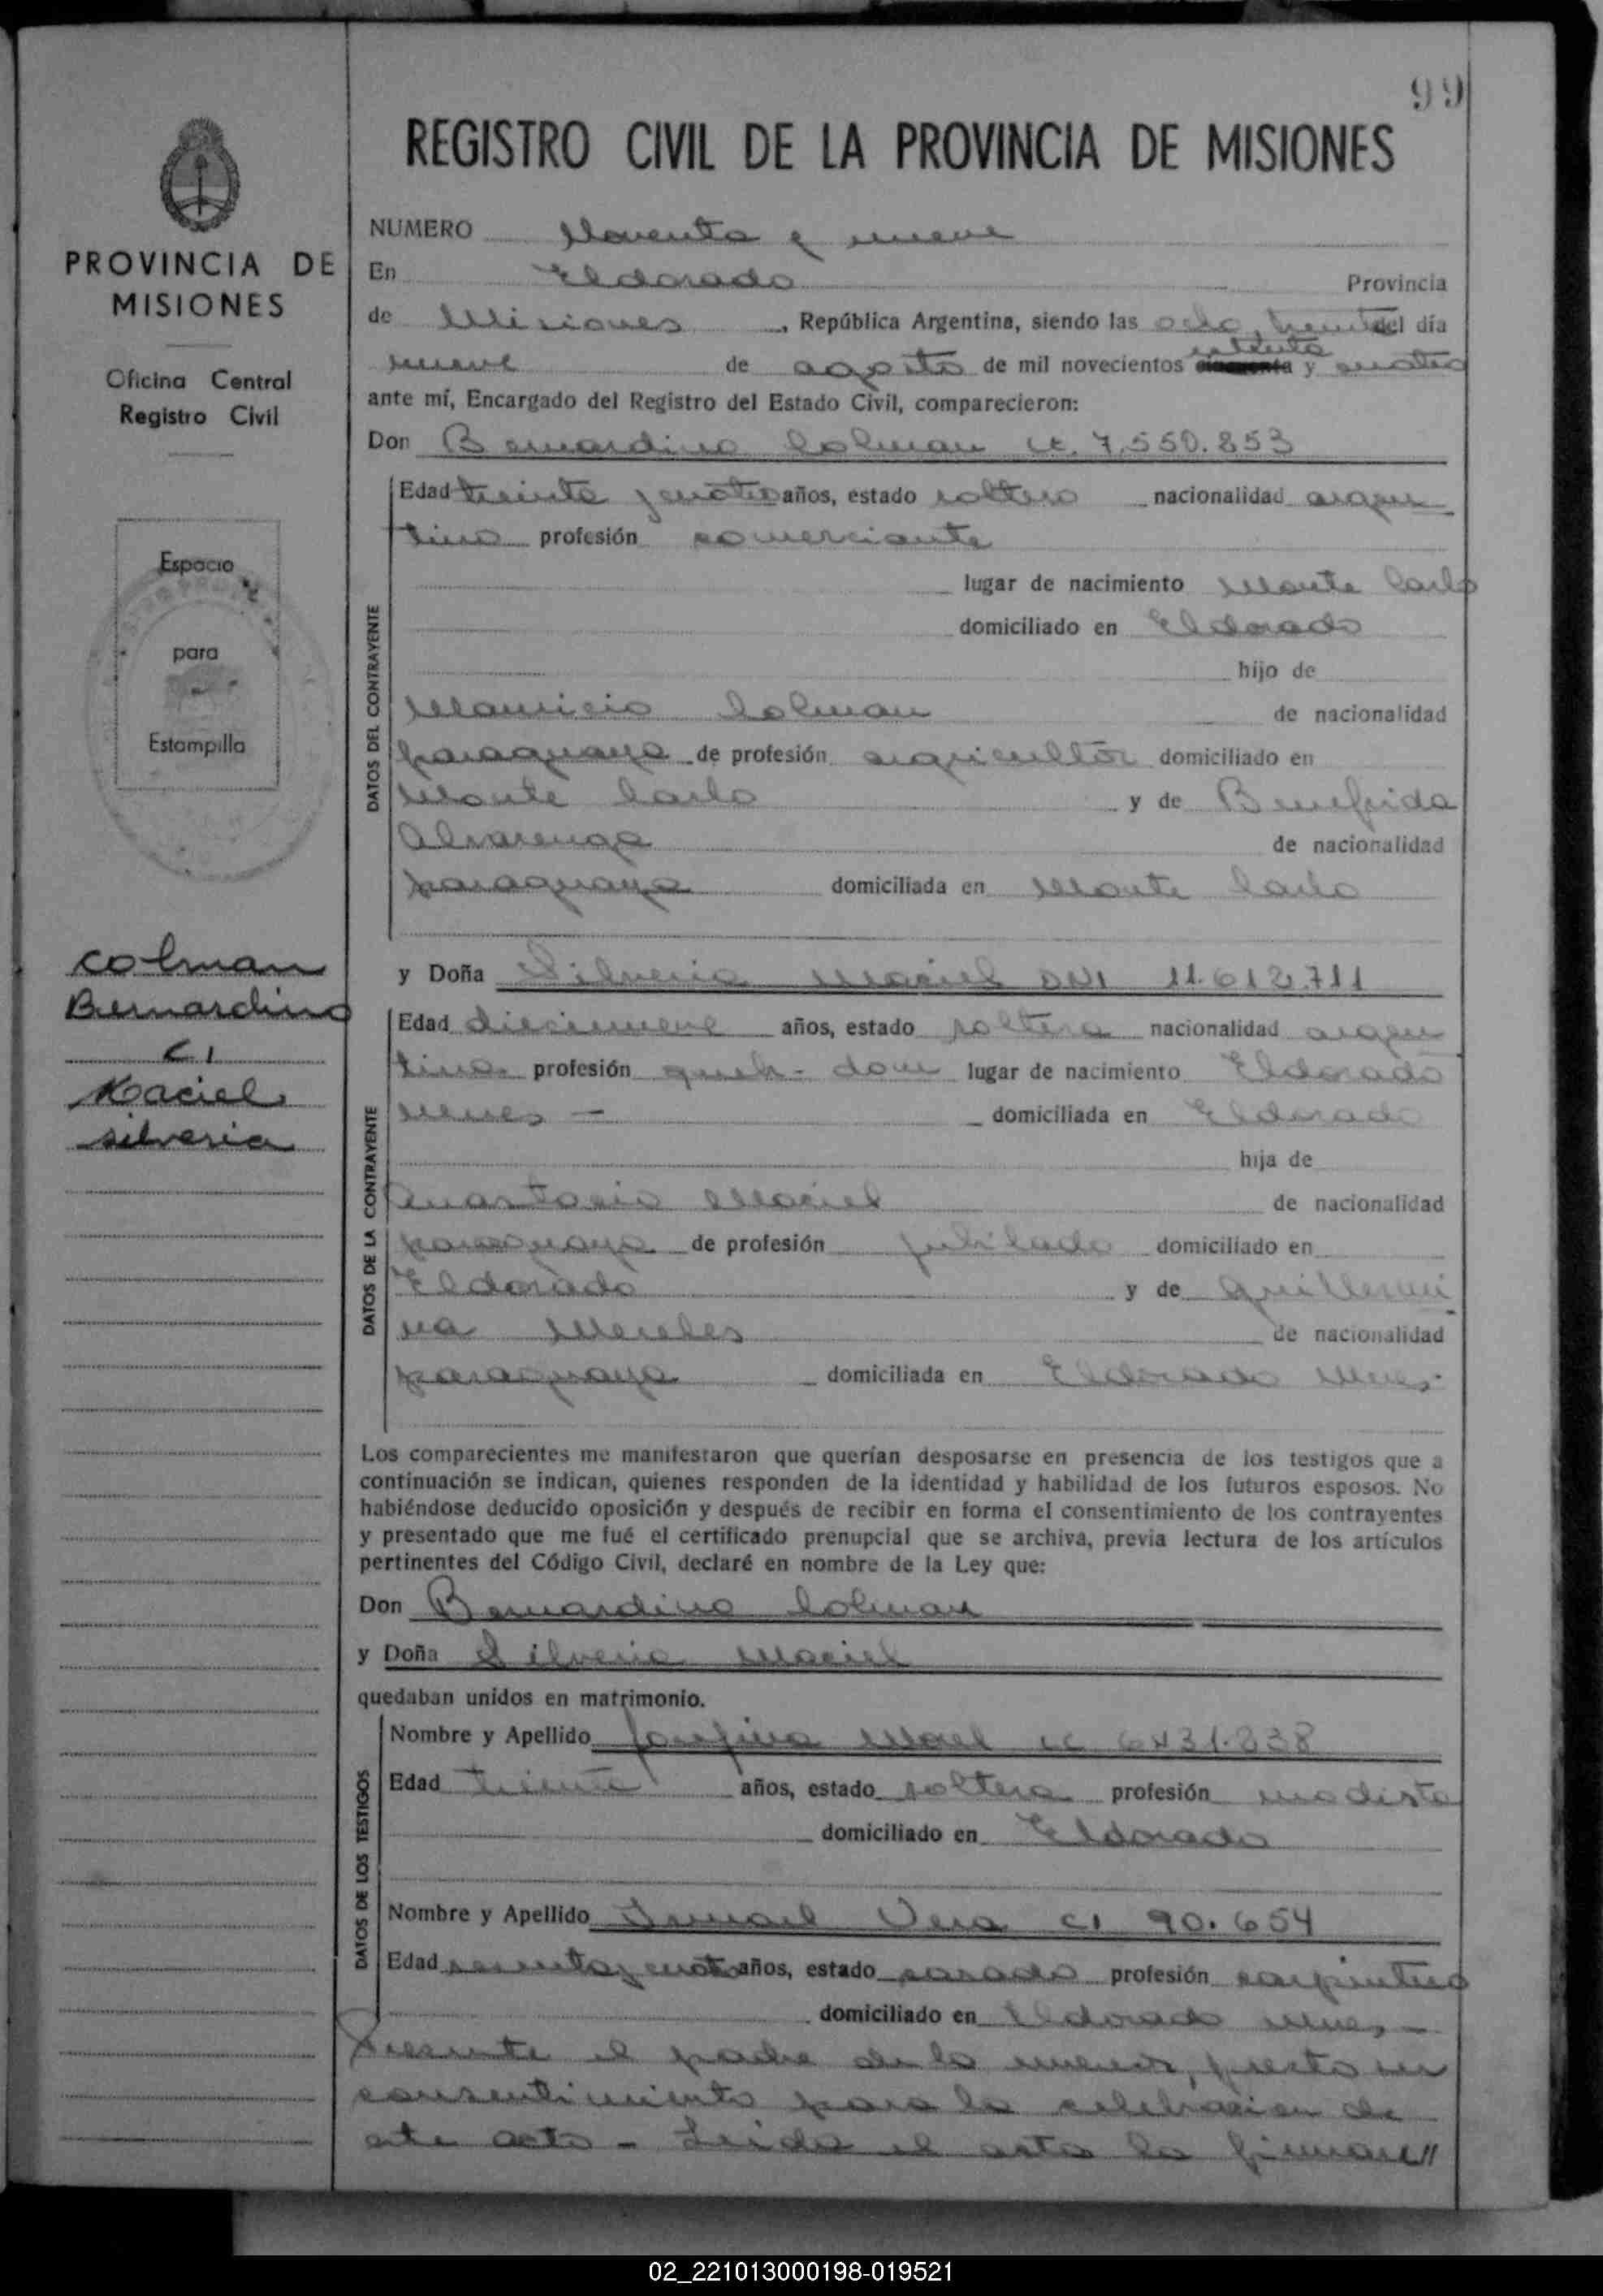 99
REGISTRO CIVIL DE LA PROVINCIA DE MISIONES
PROVINCIA DE
MISIONES
Oficina Central
Registro Civil
Espacio
para
Estampilla
Colman
Bernardino
c/
Maciel
Silveria
NUMERO Noventa y nueve
En Eldorado Provincia
de Misiones, República Argentina, siendo las ocho, treinta del día
setenta
nueve de agosto de mil novecientos cincuenta y cuatro
ante mí, Encargado del Registro del Estado Civil, comparecieron:
Don Bernardino Colman LE. 7.550.853
DATOS DEL CONTRAYENTE
Edad treinta y cuatro años, estado soltero nacionalidad argen
tino profesión comerciante
lugar de nacimiento Monte Carlo
domiciliado en Eldorado
hijo de
Mauricio Colman de nacionalidad
paraguaya de profesión agricultor domiciliado en
Monte Carlo y de Benefrida
Alvarenga de nacionalidad
paraguaya domiciliada en Monte Carlo
y Doña Silveria Maciel DNI 11.612.711
DATOS DE LA CONTRAYENTE
Edad diecinueve años, estado soltera nacionalidad argen
tina profesión queh- dom lugar de nacimiento Eldorado
Mnes - domiciliada en Eldorado
hija de
Anastacio Maciel de nacionalidad
paraguaya de profesión jubilado domiciliado en
Eldorado y de Guillermi
na Mereles de nacionalidad
paraguaya domiciliada en Eldorado Mnes.
Los comparecientes me manifestaron que querían desposarse en presencia de los testigos que a
continuación se indican, quienes responden de la identidad y habilidad de los futuros esposos. No
habiéndose deducido oposición y después de recibir en forma el consentimiento de los contrayentes
y presentado que me fué el certificado prenupcial que se archiva, previa lectura de los artículos
pertinentes del Código Civil, declaré en nombre de la Ley que:
Don Bernardino Colman
y Doña Silveria Maciel
quedaban unidos en matrimonio.
DATOS DE LOS TESTIGOS
Nombre y Apellido Josefina LC
Edad treinta años, estado soltera profesión modista
domiciliado en Eldorado
Nombre y Apellido Ismael Vera CI 90.654
Edad años, estado casado profesión carpintero
domiciliado en Eldorado Mnes, -
Presente el padre de la menor, presta su
consentimiento para la celebracion de
este acto - Leida el acta la firman//
02_221013000198-019521